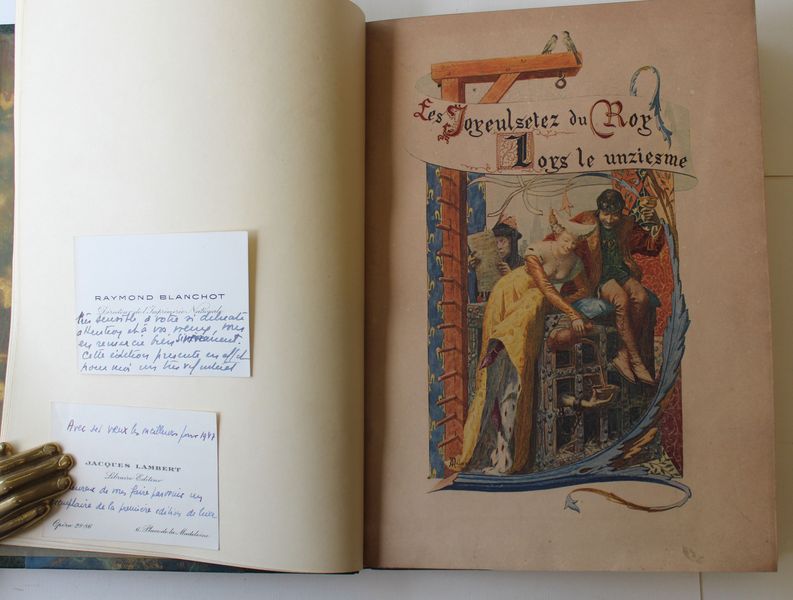 RAYMOND BLANCHOT
Directeur de l'Imprimerie Nationale
très sensible à votre si délicate
attention et à vos vœux, vous
en remercie bien sincèrement.
Cette édition présente en effet
pour moi un très vif intérêt
Avec ses vœux les meilleurs pour 1947
JACQUES LAMBERT
Libraire-Editeur
heureux de vous faire parvenir un
exemplaire de la première édition de luxe
Opéra 28-86
6, Place de la Madeleine
Les Joyeulsetez du Roy
Loys le unziesme